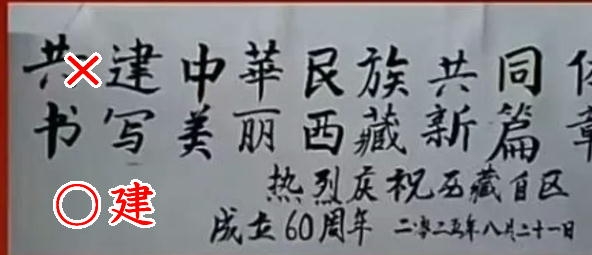 共建中華民族共同体
书写美丽西藏新篇章
热烈庆祝西藏自区
成立60周年 二零二五年八月二十一日
✕
〇建